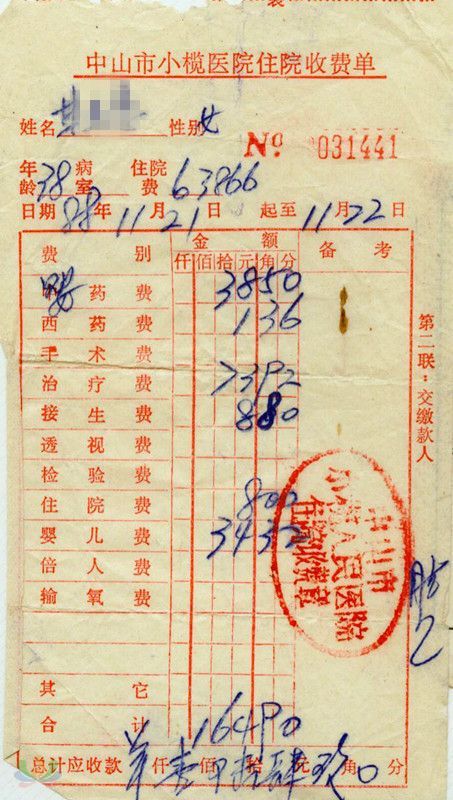 中山市小榄医院住院收费单
姓名 性别女
Nº 031441
年龄38 病室 住院费 63866
日期88年11月21日 起至11月22日
费别 金额 备考
仟佰拾元角分
药费 3850
西药费 136
手术费
治疗费
接生费 880
透视费
检验费
住院费 800
婴儿费
倍人费
输氧费
其它
合计 16490
总计应收款 仟 佰 拾 元 角 0 分
第二联：交缴款人
中山市
小榄人民医院
住院收费章